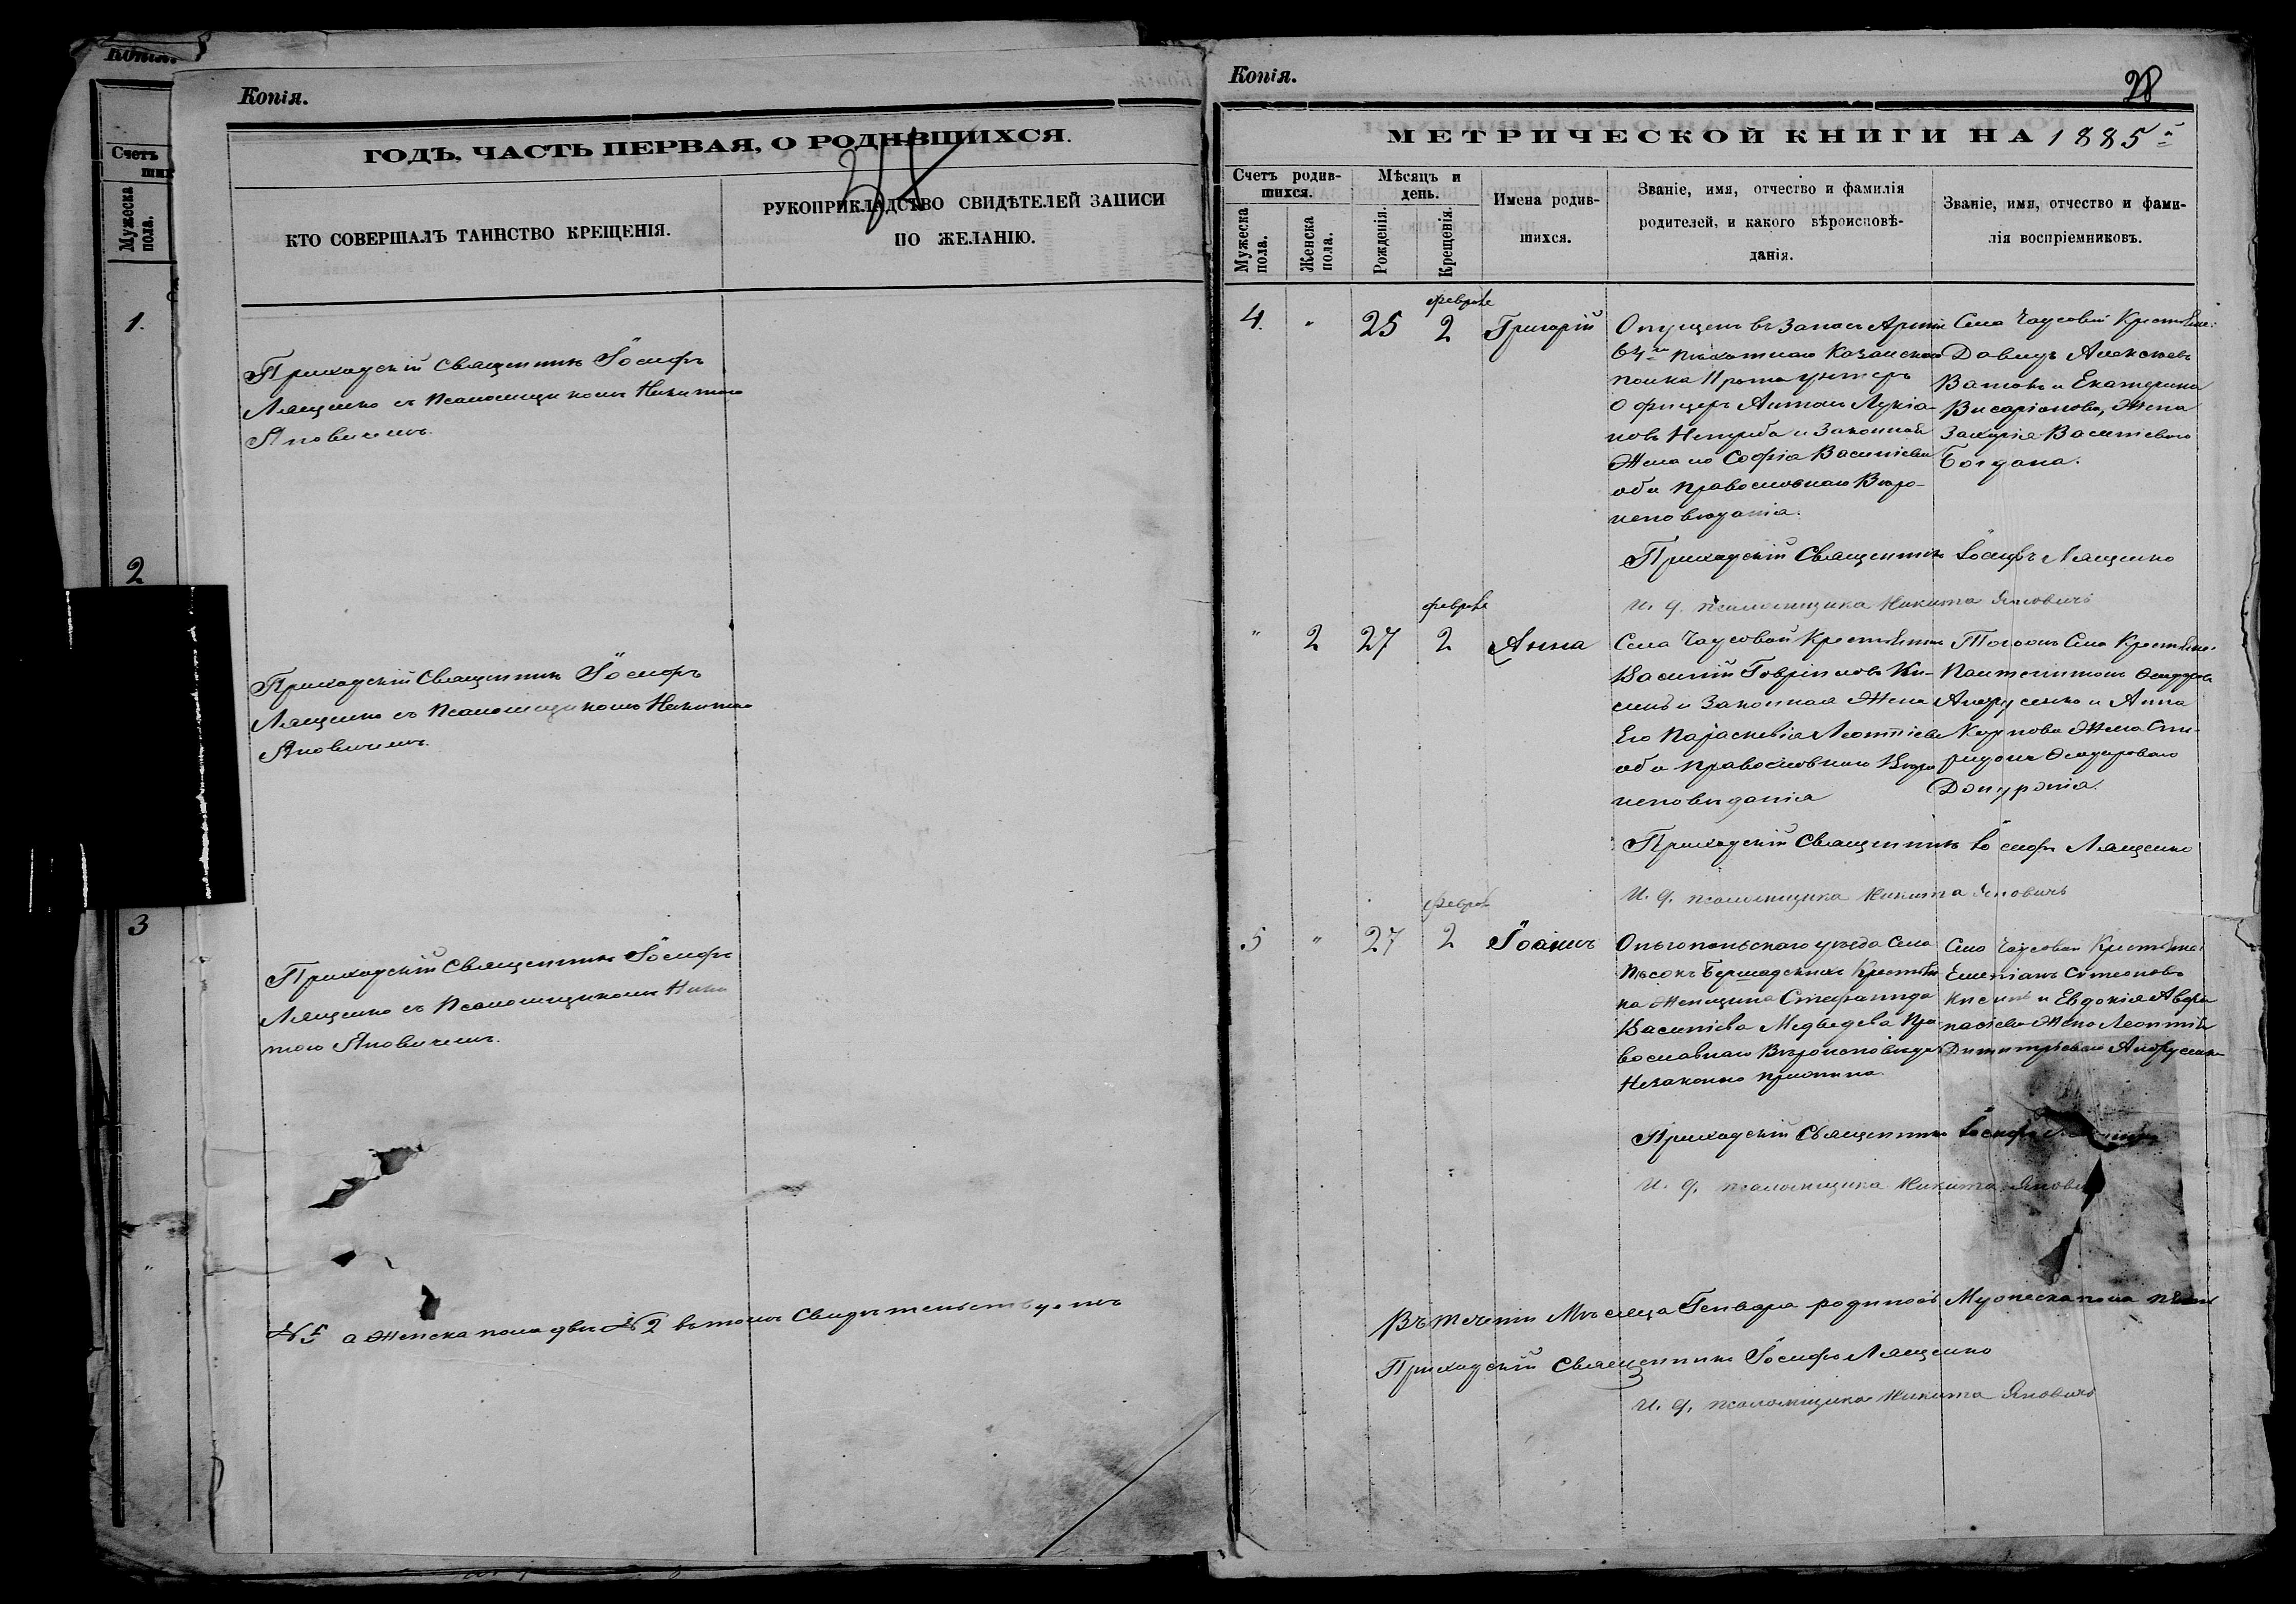 Копія.
Счетъ
Мужеска пола.
1.
2
3
Копія.
ГОДЪ, ЧАСТЬ ПЕРВАЯ, О РОДИВШИХСЯ.
КТО СОВЕРШАЛЪ ТАИНСТВО КРЕЩЕНІЯ.
РУКОПРИКЛАДСТВО СВИДѢТЕЛЕЙ ЗАПИСИ
ПО ЖЕЛАНІЮ.
Приходскій Священникъ Іосифъ
Лященко съ Псаломщикомъ Никитою
Яновичемъ.
Приходскій Священникъ Іосифъ
Лященко съ Псаломщикомъ Никитою
Яновичемъ.
Приходскій Священникъ Іосифъ
Лященко съ Псаломщикомъ Ники
тою Яновичемъ.
№ 5 а Женска пола двѣ № 2 въ томъ Свидѣтельствуемъ
Копія.
28
МЕТРИЧЕСКОЙ КНИГИ НА 1885
Счетъ родив-
шихся.
Мѣсяцъ и
день.
Мужеска пола.
Женска пола.
Рожденія.
Крещенія.
Имена родив-
шихся.
Званіе, имя, отчество и фамилія
родителей, и какого вѣроисповѣ-
данія.
Званіе, имя, отчество и фами-
лія воспріемниковъ.
4. " 25 2 Григорій
Опущен въ Запас Арміи
64 пѣхотнаго Казанскаго
полка унтеръ
Офицеръ Антонъ Лукіа-
новъ и Законная
Жена его Софія Василіева
оба православнаго Вѣро-
исповѣданія.
Села Чаусовой
Давидъ Алексѣевъ
Ватовъ и Екатерина
Висаріонова, Жена
Захарія Василіеваго
Богдана.
Приходскій Священникъ Іосифъ Лященко
И. д. псаломщика Никита Яновичъ
" 2 27 2 Анна
Села Чаусовой
Василій
и Законная Жена
Его Параскевія Леонтіева
оба православнаго Вѣро
исповѣданія
Тогожъ Села
Андрусенко и Анна
Карпова Жена Спи-
ридона
Приходскій Священникъ Іосифъ Лященко
И. д. псаломщика Никита Яновичъ
5 " 27 2 Іоаннъ
Ольгопольскаго уѣзда Села
Пѣсокъ Бершадскихъ Крестьян
ка Женщина Стефанида
Василіева Медведева Пра
вославнаго Вѣроисповѣда
Незаконно прижила.
Села Чаусовой
Емеліанъ Симеоновъ
и Евдокія Афа
насіева Жена Леонтія
Димитріеваго Андрусенка
Приходскій Священникъ Іосифъ
И. д. псаломщика Никита
Въ теченіи Мѣсяца Генваря родилось Мужеска пола пять
Приходскій Священникъ Іосифъ Лященко
И. д. псаломщика Никита Яновичъ